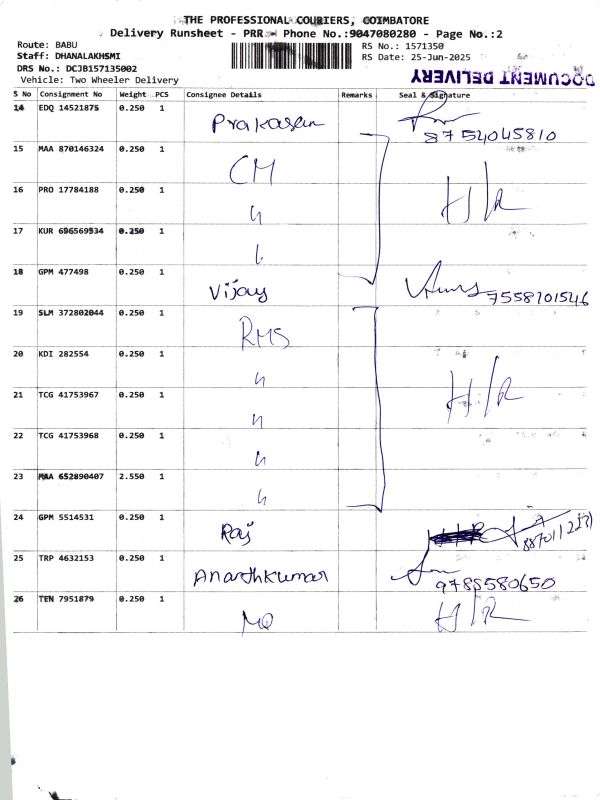 THE PROFESSIONAL COURIERS, COIMBATORE
Delivery Runsheet - PRR Phone No.:9047080280 - Page No.:2
Route: BABU
Staff: DHANALAKHSMI
DRS No.: DCJB157135002
Vehicle: Two Wheeler Delivery
RS No.: 1571350
RS Date: 25-Jun-2025
DOCUMENT DELIVERY
S No Consignment No Weight PCS Consignee Details Remarks Seal & Signature
14 EDQ 14521875 0.250 1 Prakasam 8754045810
15 MAA 870146324 0.250 1 CM
16 PRO 17784188 0.250 1 〃 H/R
17 KUR 696569534 0.250 1
18 GPM 477498 0.250 1 Vijay 7558101546
19 SLM 372802044 0.250 1 RMS
20 KDI 282554 0.250 1 〃
21 TCG 41753967 0.250 1 〃 H/R
22 TCG 41753968 0.250 1 〃
23 MAA 652890407 2.550 1 〃
24 GPM 5514531 0.250 1 Raj
25 TRP 4632153 0.250 1 Ananthkumar 9785580650
26 TEN 7951879 0.250 1 MQ H/R